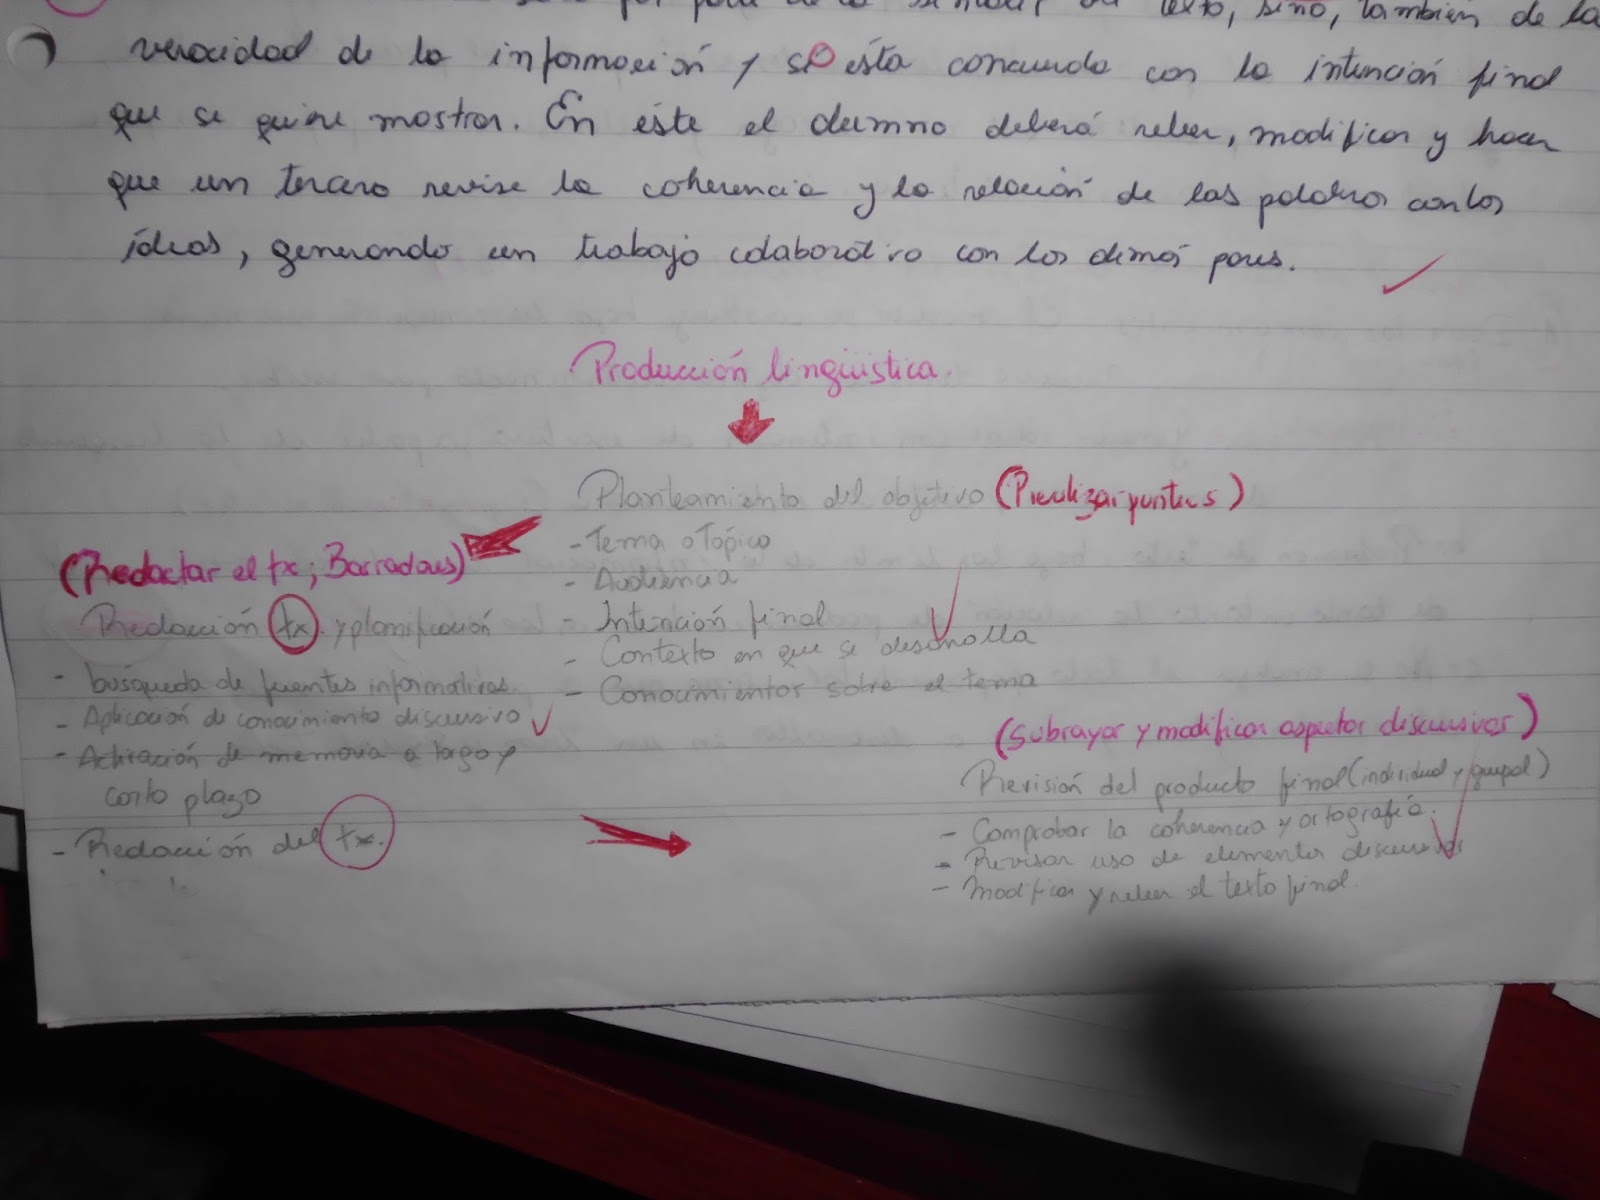 texto, sino, también de la
veracidad de la información y si ésta concuerda con la intención final
que se quiere mostrar. En éste el alumno deberá releer, modificar y hacer
que un tercero revise la coherencia y la relación de las palabras con los
ideas, generando un trabajo colaborativo con los demás pares.
Producción lingüística
Planteamiento del objetivo (Prealizar punteos)
- Tema o Tópico
- Audiencia
- Intención final
- Contexto en que se desarrolla
- Conocimientos sobre el tema
(Redactar el tx; Borradores)
Redacción tx. y planificación
- búsqueda de fuentes informativas
- Aplicación de conocimiento discursivo
- Activación de memoria a largo y
corto plazo
- Redacción del tx.
(Subrayar y modificar aspectos discursivos)
Revisión del producto final (individual y grupal)
- Comprobar la coherencia y ortografía.
- Revisar uso de elementos discursivos
- Modificar y releer el texto final.